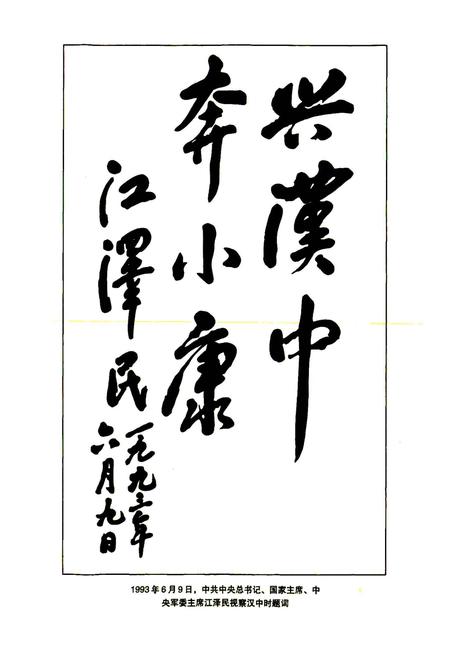 兴漢中
奔小康
江澤民
一九九三年
六月九日
1993年6月9日，中共中央总书记、国家主席、中
央军委主席江泽民视察汉中时题词